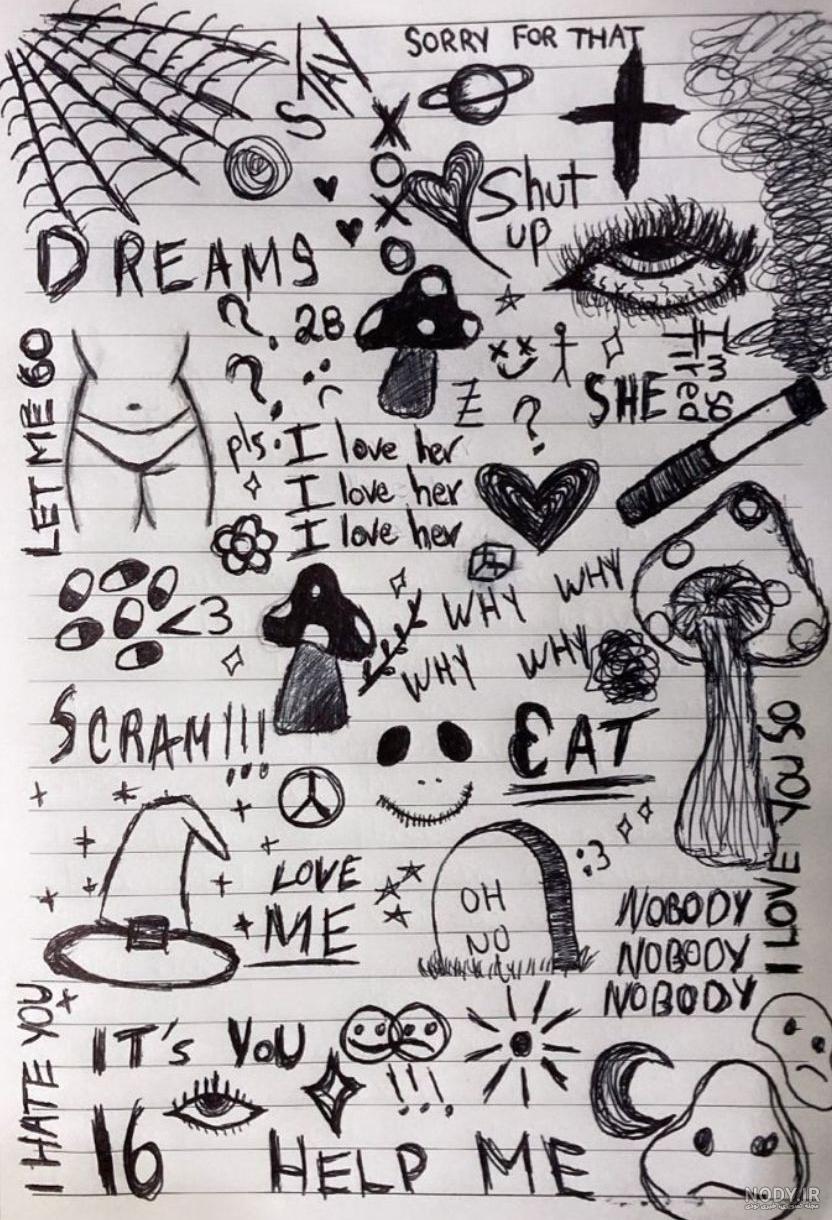 STAY
SORRY FOR THAT
X
O
X
O
Shut
up
DREAMS
? 28
?
LET ME GO
Z
?
SHE
Im so
Tired
pls. I love her
I love her
I love her
<3
WHY WHY
WHY WHY
SCRAM!!!
EAT
:3
LOVE
ME
OH
NO
I LOVE YOU SO
NOBODY
NOBODY
NOBODY
I HATE YOU
IT's YOU
!!!
16
HELP ME
NODY.IR